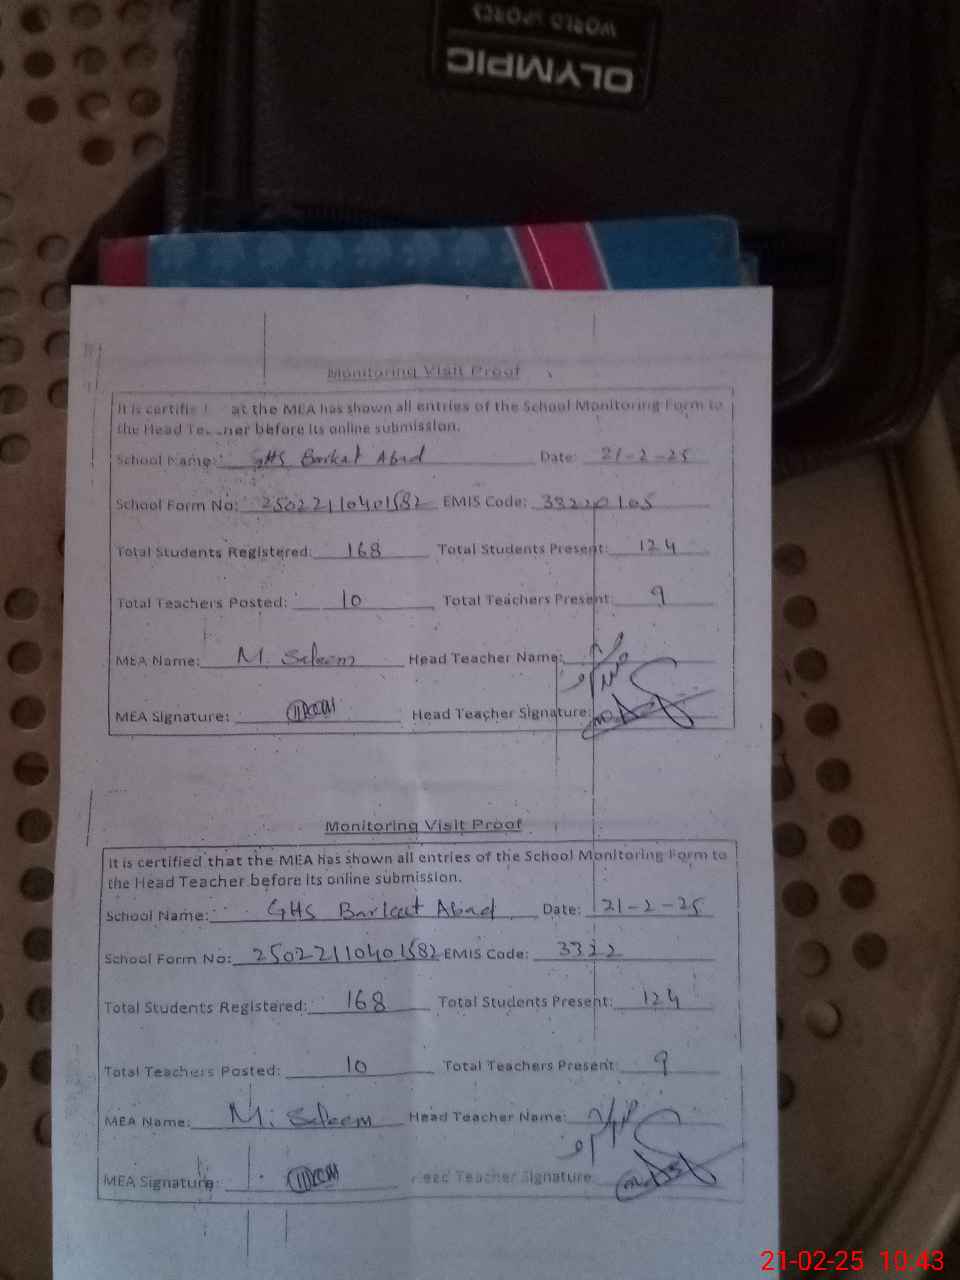 OLYMPIC
WORLD SPORTS
Monitoring Visit Proof
It is certifie at the MEA has shown all entries of the School Monitoring Form to
the Head Teacher before its online submission.
School Name: GHS Barkat Abad Date: 21-2-25
School Form No: 25022110401582 EMIS Code: 33220105
Total Students Registered: 168 Total Students Present: 124
Total Teachers Posted: 10 Total Teachers Present: 9
MEA Name: M. Saleem Head Teacher Name:
MEA Signature: Head Teacher Signature:
Monitoring Visit Proof
It is certified that the MEA has shown all entries of the School Monitoring Form to
the Head Teacher before its online submission.
School Name: GHS Barkat Abad Date: 21-2-25
School Form No: 25022110401582 EMIS Code: 3322
Total Students Registered: 168 Total Students Present: 124
Total Teachers Posted: 10 Total Teachers Present: 9
MEA Name: M. Saleem Head Teacher Name:
MEA Signature: Head Teacher Signature:
21-02-25 10:43